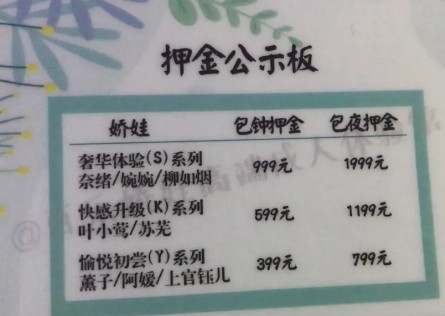 押金公示板
娇娃 包钟押金 包夜押金
奢华体验(S)系列
奈绪/婉婉/柳如烟 999元 1999元
快感升级(K)系列
叶小莺/苏芜 599元 1199元
愉悦初尝(Y)系列
薰子/阿媛/上官钰儿 399元 799元